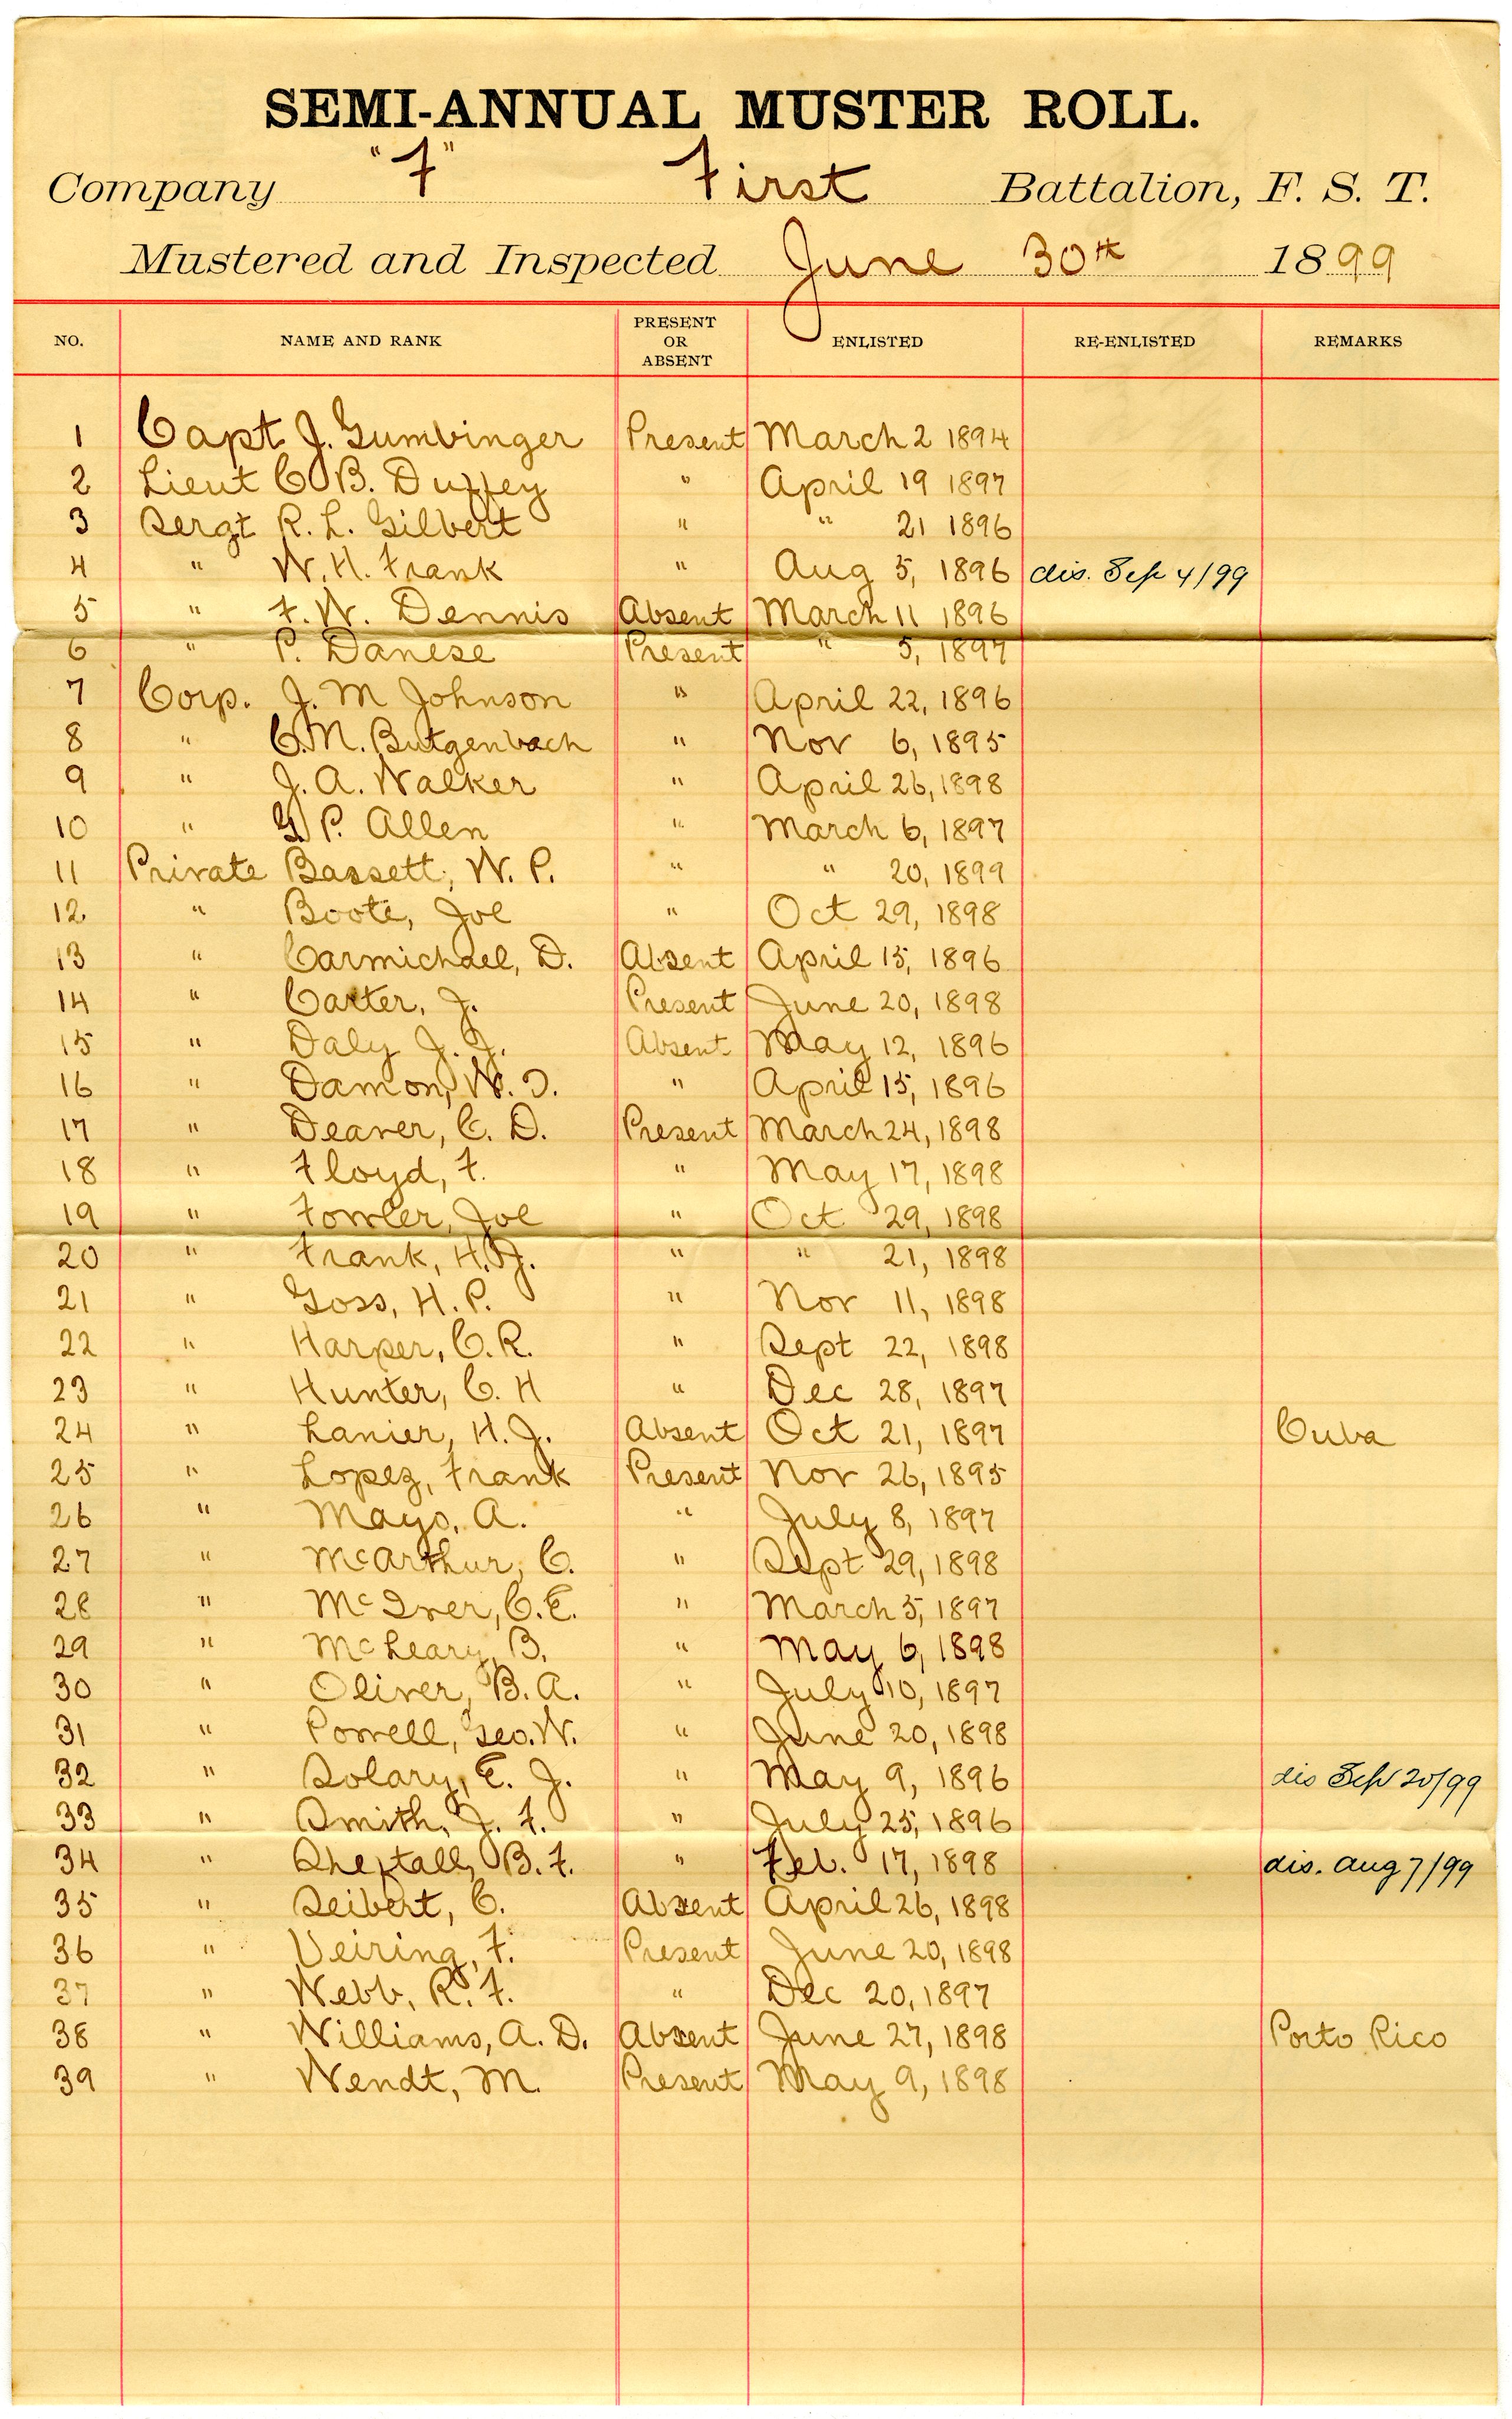 SEMI-ANNUAL MUSTER ROLL.
Company "F" First Battalion, F. S. T.
Mustered and Inspected June 30th 1899
NO. NAME AND RANK PRESENT OR ABSENT ENLISTED RE-ENLISTED REMARKS
1 Capt J. Gumbinger Present March 2 1894
2 Lieut C B. Duffey " April 19 1897
3 Sergt R. L. Gilbert " " 21 1896
4 " W. H. Frank " Aug 5, 1896 dis. Sep 4/99
5 " F. W. Dennis Absent March 11 1896
6 " P. Danese Present " 5, 1897
7 Corp. J. M Johnson " April 22, 1896
8 " C. M. Butgenbach " Nov 6, 1895
9 " J. A. Walker " April 26, 1898
10 " G P. Allen " March 6, 1897
11 Private Bassett, W. P. " " 20, 1899
12 " Boote, Joe " Oct 29, 1898
13 " Carmichael, D. Absent April 15, 1896
14 " Carter, J. Present June 20, 1898
15 " Daly J. J. Absent May 12, 1896
16 " Damon, W. I. " April 15, 1896
17 " Deaver, C. D. Present March 24, 1898
18 " Floyd, F. " May 17, 1898
19 " Fowler, Joe " Oct 29, 1898
20 " Frank, H. J. " " 21, 1898
21 " Goss, H. P. " Nov 11, 1898
22 " Harper, C. R. " Sept 22, 1898
23 " Hunter, C. H " Dec 28, 1897
24 " Lanier, H. J. Absent Oct 21, 1897 Cuba
25 " Lopez, Frank Present Nov 26, 1895
26 " Mayo, A. " July 8, 1897
27 " McArthur, C. " Sept 29, 1898
28 " McIver, C. E. " March 5, 1897
29 " McLeary, B. " May 6, 1898
30 " Oliver, B. A. " July 10, 1897
31 " Powell, Geo. W. " June 20, 1898
32 " Solary, E. J. " May 9, 1896 dis Sep 20/99
33 " Smith, J. F. " July 25, 1896
34 " Sheftall, B. F. " Feb. 17, 1898 dis. Aug 7/99
35 " Seibert, C. Absent April 26, 1898
36 " Veiring, F. Present June 20, 1898
37 " Webb, R. F. " Dec 20, 1897
38 " Williams, A. D. Absent June 27, 1898 Porto Rico
39 " Wendt, M. Present May 9, 1898